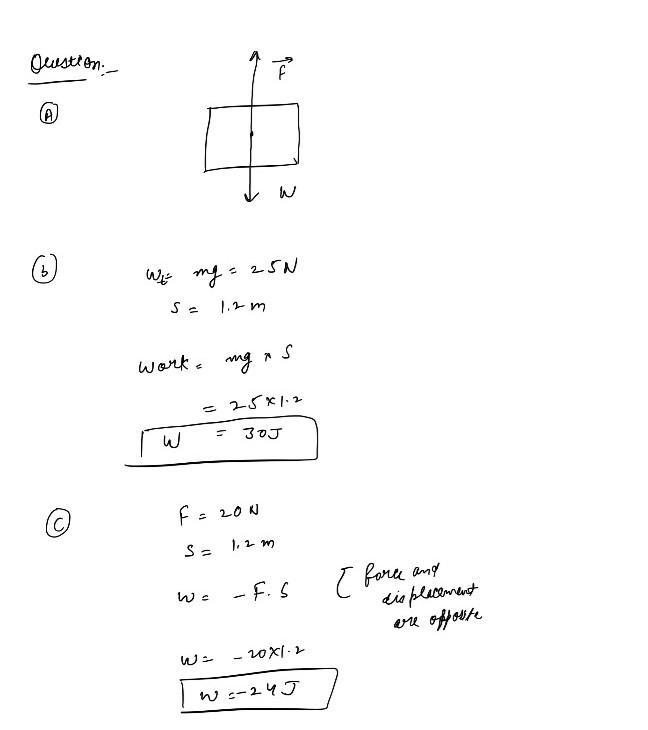 Question:-
A
F
W
b
Wt = mg = 25N
S = 1.2 m
Work = mg × S
= 25×1.2
W = 30J
C
F = 20 N
S = 1.2 m
W = - F. S [ force and
displacement
are opposite
W = - 20×1.2
W = -24 J